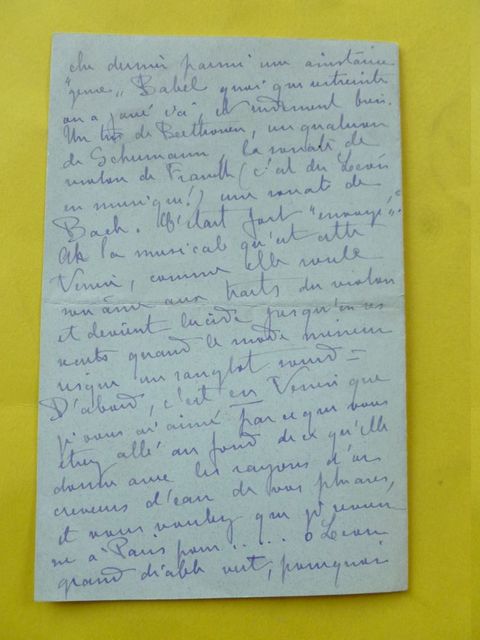 che dernier parmi une
"genre" Babel quoi que restreinte
on a joué là et rudement bien.
Un trio de Beethoven, un quatuor
de Schumann, la sonate de
violon de Franck (c'est du
en musique!) une sonate de
Bach. C'était fort "envoyé".
Ah la musicale qu'est cette
Venise, comme elle roule
son âme aux traits du violon
et devient lucide jusqu'en ses
quand le mode mineur
risque un sanglot sourd =
D'abord, c'est en Venise que
j'vous ai aimé parce que vous
étiez allé au fond de ce qu'elle
donne avec les rayons d'or
creveurs d'eau de vos phrases,
et vous voulez que j'revien
ne à Paris pour..... ô
grand diable vert, pourquoi